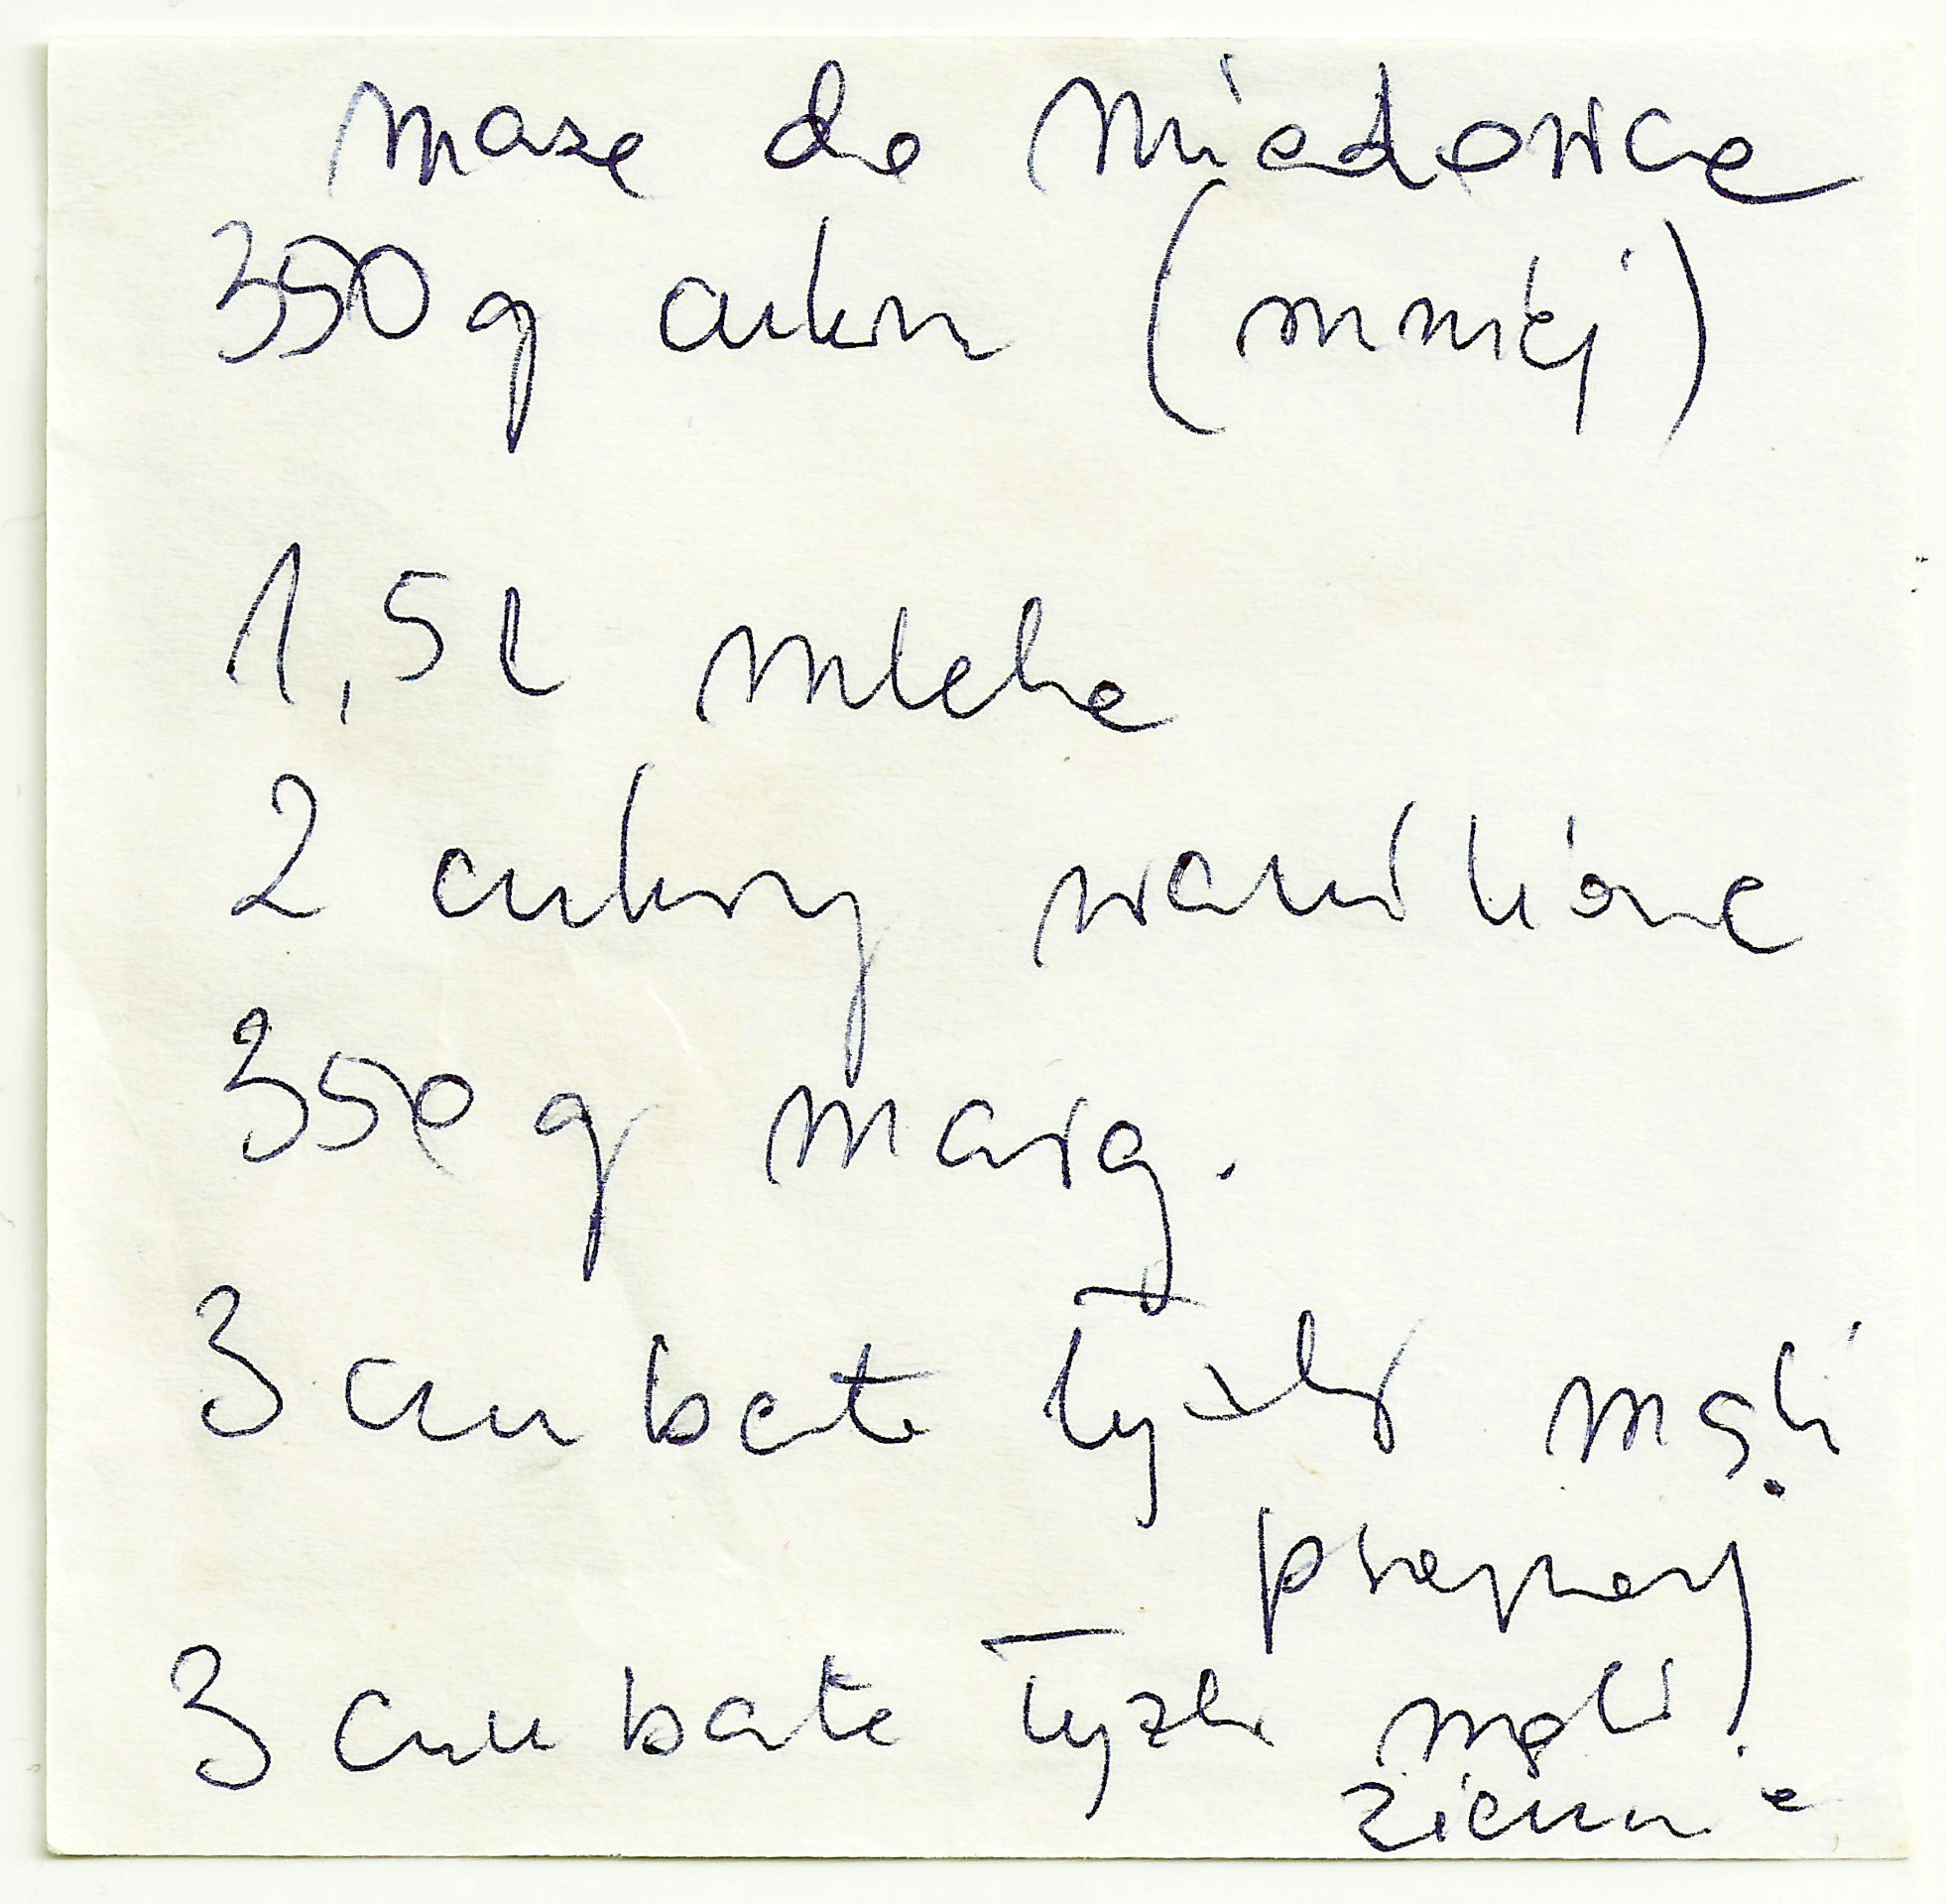 masa do miodowca
350 g cukru (mniej)
1,5 l mleka
2 cukry waniliowe
350 g marg.
3 czubate łyżki mąki
pszennej
3 czubate łyżki mąki
ziemn